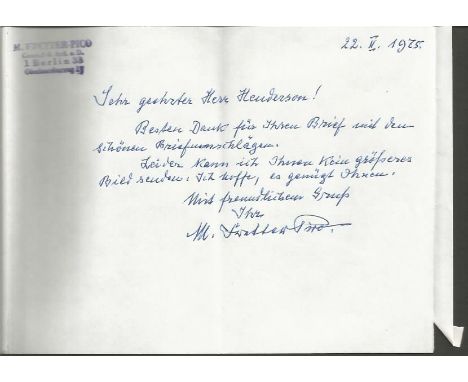 M. FRETTER-PICO
1 Berlin 38
22. II. 1975.
Sehr geehrter Herr Henderson!
Besten Dank für Ihren Brief mit den
schönen Briefumschlägen.
Leider kann ich Ihnen kein größeres
Bild senden. Ich hoffe, es genügt Ihnen.
Mit freundlichem Gruß
Ihr
M. Fretter Pico.